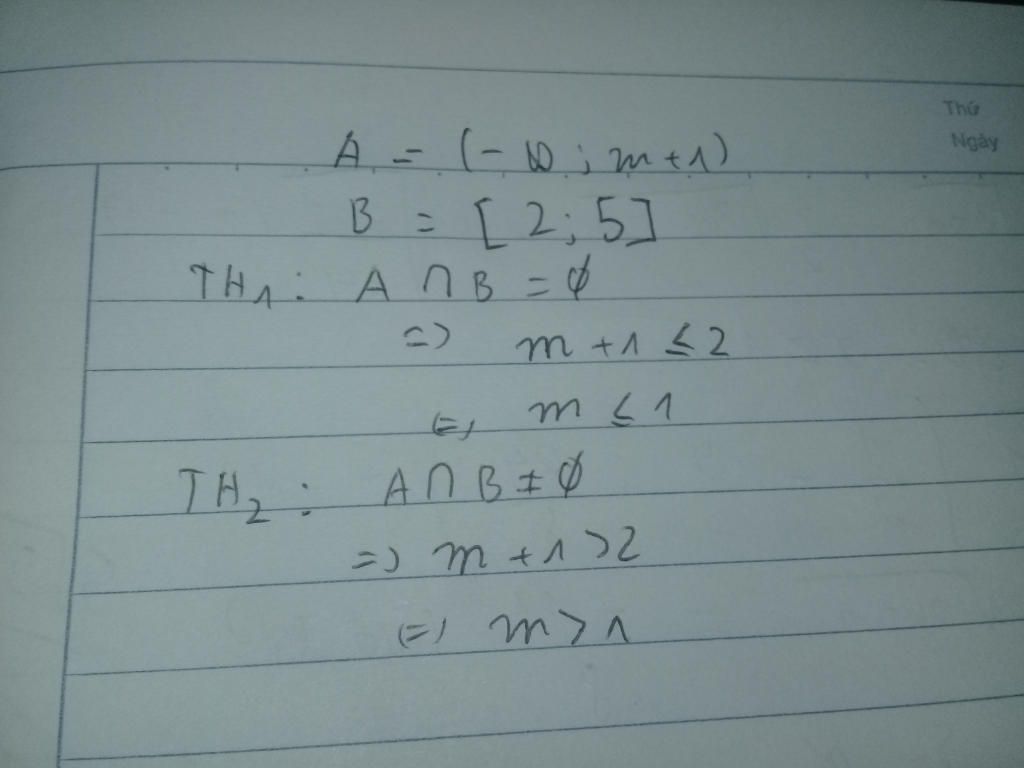 Thứ
Ngày
A = (-∞; m+1)
B = [2; 5]
TH1: A ∩ B = ∅
=> m + 1 ≤ 2
<=> m ≤ 1
TH2: A ∩ B ≠ ∅
=> m + 1 > 2
<=> m > 1